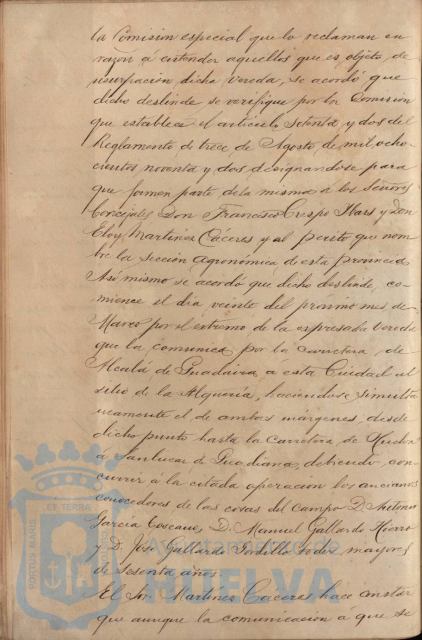 la Comision especial que lo reclaman en
razon á entender aquellos que es objeto de
usurpación dicha vereda, se acordó que
dicho deslinde se verifique por la Comisión
que establece el artículo setenta y dos del
Reglamento de trece de Agosto de mil ocho-
cientos noventa y dos designandose para
que formen parte de la misma á los Señores
Concejales Don Francisco Crespo y Don
Eloy Martinez Cáceres y al perito que nom-
bre la Sección Agronómica de esta provincia
Asi mismo se acordó que dicho deslinde, co-
mience el dia veinte del próximo mes de
Marzo por el extremo de la expresada Vereda
que la comunica por la Carretera, de
Alcalá de Guadaira a esta Ciudad al
sitio de la Alquería, haciéndose simulta
neamente el de ambas márgenes, desde
dicho punto hasta la Carretera de Huelva
á Sanlucar de Guadiana, debiendo, con-
currir a la citada operación los ancianos
conocedores de las cosas del campo D. Antonio
García Toscano, D. Manuel Gallardo
y D. José Gallardo Gordillo todos mayores
de sesenta años.
El Sr. Martinez Caceres hace constar
que aunque la comunicación á que se
PORTUS MARIS ET TERRAE
Ayuntamiento de
HUELVA